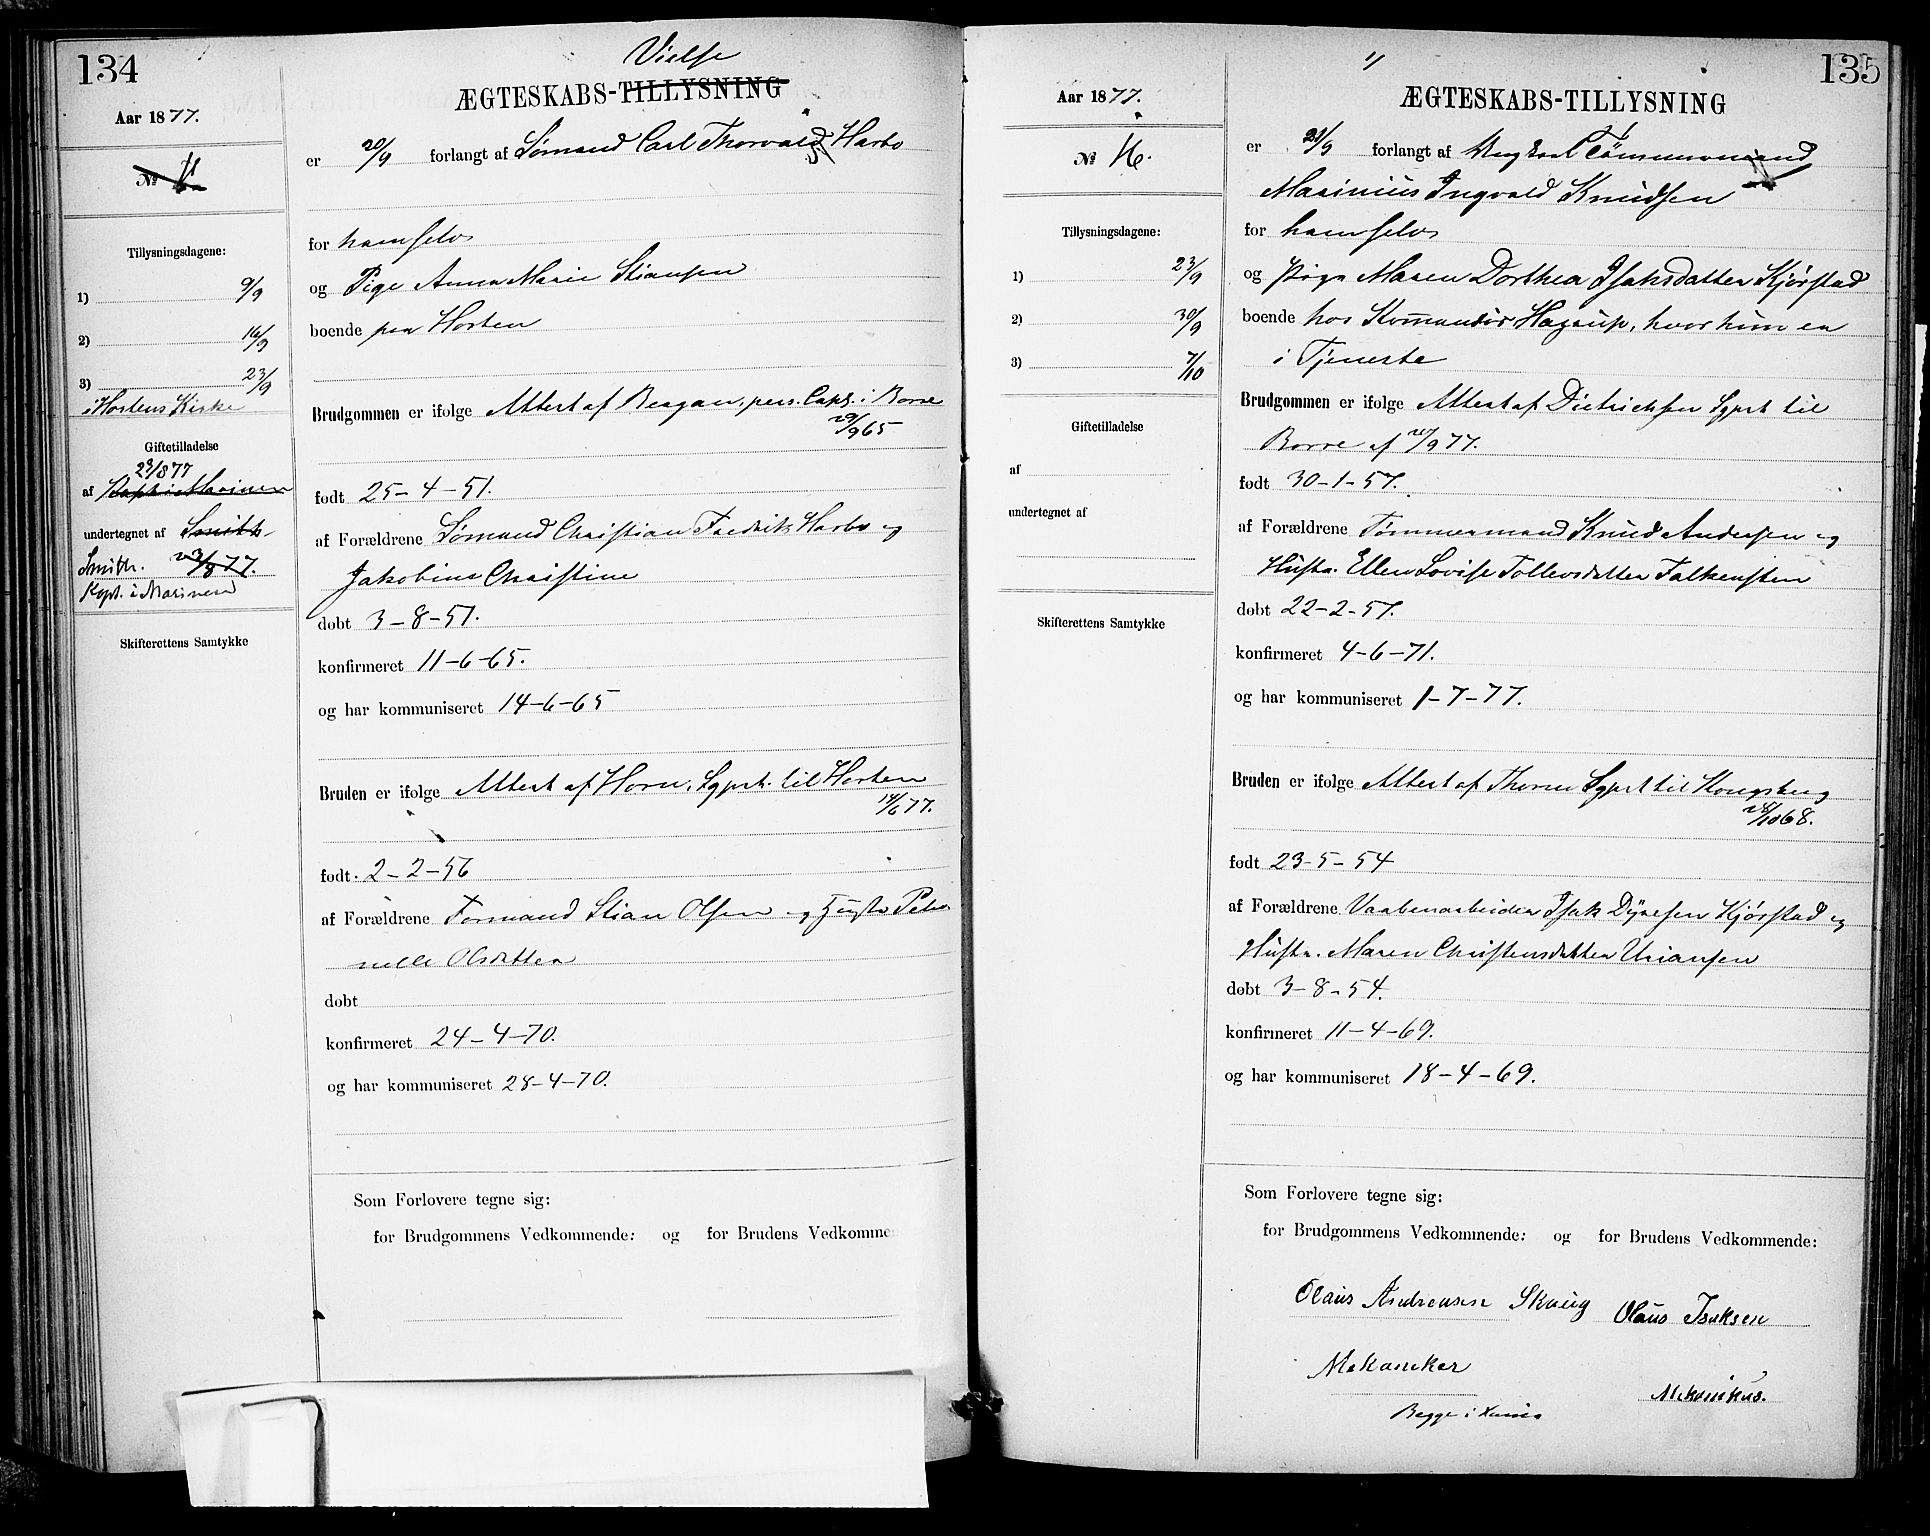 134
Aar 1877.
№
Tillysningsdagene:
1) 9/9
2) 16/9
3) 23/9
i Hortens Kirke
Giftetilladelse
23/8 77
af Kapt. i Marinen
undertegnet af Smith
Smith. 23/8 77.
Kapt. i Marinen
Skifterettens Samtykke
Vielse
ÆGTESKABS-TILLYSNING
er 20/9 forlangt af Sømand Carl Thorvald Harbo
for ham selv
og Pige Anna Marie Stiansen
boende paa Horten
Brudgommen er ifølge Attest af Bergan, pers. Capl. i Borre
29/9 65
født 25-4-51.
af Forældrene Sømand Christian Fredrik Harbo og
Jakobine Christine
døbt 3-8-51.
konfirmeret 11-6-65.
og har kommuniseret 14-6-65
Bruden er ifølge Attest af Horn, Sgprst. til Horten
14/6 77.
født 2-2-56
af Forældrene Formand Stian Olsen og Hustr Peter
nelle Olsdatter
døbt
konfirmeret 24-4-70.
og har kommuniseret 28-4-70.
Som Forlovere tegne sig:
for Brudgommens Vedkommende: og for Brudens Vedkomme
135
Aar 1877.
№ 16.
Tillysningsdagene:
1) 23/9
2) 30/9
3) 7/10
Giftetilladelse
af
undertegnet af
Skifterettens Samtykke
ÆGTESKABS-TILLYSNING
er 21/9 forlangt af Ungkarl Tømmermand
Marinius Ingvald Knudsen
for ham selv
og Pige Maren Dorthea Isaksdatter Kjørstad
boende hos Komandør Hagrup, hvor hun er
i Tjeneste
Brudgommen er ifølge Attest af Dietrichsen Sgprst til
Borre af 20/9 77.
født 30-1-57.
af Forældrene Tømmermand Knud Andersen og
Hustr. Ellen Lovise Tollevsdatter Falkensten
døbt 22-2-57.
konfirmeret 4-6-71.
og har kommuniseret 1-7-77.
Bruden er ifølge Attest af Thorne Sgprst til Kongsberg
28/10 68.
født 23-5-54
af Forældrene Vaabenarbeider Isak Dyresen Kjørstad og
Hustr. Maren Christensdatter Uriansen
døbt 3-8-54.
konfirmeret 11-4-69.
og har kommuniseret 18-4-69.
Som Forlovere tegne sig:
for Brudgommens Vedkommende: og for Brudens Vedkommende:
Olaus Andreasen Skaug Olaus Isaksen
Mekaniker
Mekanikus.
Begge i